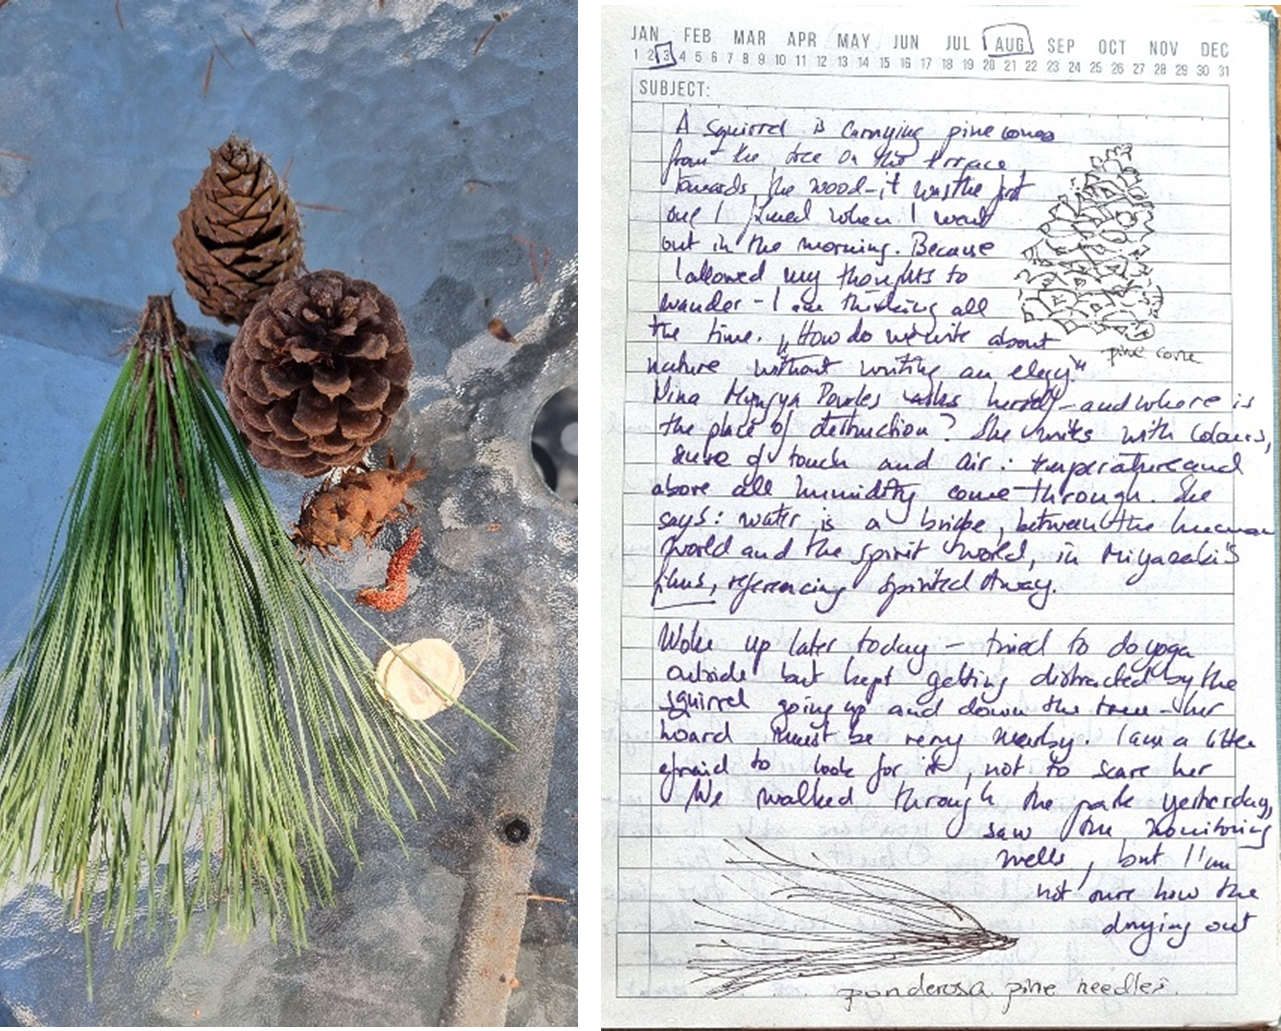 JAN FEB MAR APR MAY JUN JUL AUG SEP OCT NOV DEC
1 2 3 4 5 6 7 8 9 10 11 12 13 14 15 16 17 18 19 20 21 22 23 24 25 26 27 28 29 30 31
SUBJECT:
A squirrel is carrying pine cones
from the tree on the terrace
towards the wood - it was the first
one I when I went
out in the morning. Because
I allowed my thoughts to
wander - I am thinking all
the time. „How do we write about
nature without writing an elegy"
pine cone
Nina Mingya Powles asks herself - and where is
the place of destruction? She writes with colours,
sense of touch and air: temperature and
above all humidity come through. She
says: water is a bridge, between the human
world and the spirit world, in Miyazaki's
films, referencing Spirited Away.
Woke up later today - tried to do yoga
outside but kept getting distracted by the
squirrel going up and down the tree - her
hoard must be very nearby. I am a little
afraid to look for it, not to scare her
We walked through the park yesterday,
saw the monitoring
wells, but I'm
not sure how the
drying out
ponderosa pine needles.